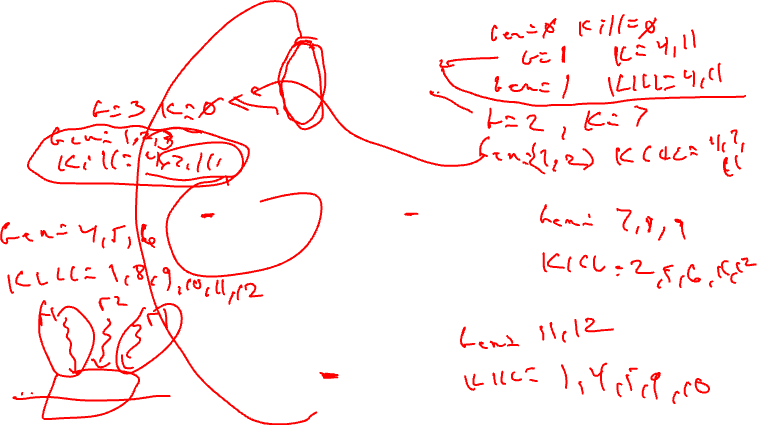 Gen=ø Kill=ø
G=1 K=4,11
Gen=1 Kill=4,11
G=2, K=7
Gen={1,2} Kill=4,7,11
G=3 K=ø
Gen=1,2,3
Kill=4,7,11,
Gen=4,5,6
Kill=1,8,9,10,11,12
Gen= 7,8,9
Kill=2,5,6,10,12
Gen= 11,12
Kill= 1,4,5,9,10
r1 r2 r
...